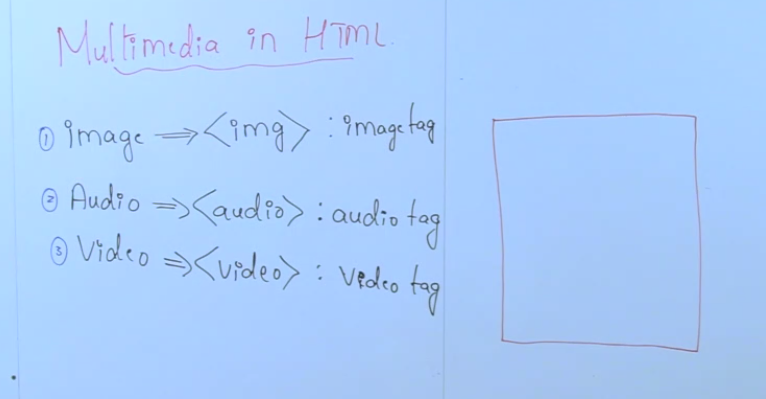 Multimedia in HTML.
① image ⟹ <img> : image tag
② Audio ⟹ <audio> : audio tag
③ Video ⟹ <video> : video tag